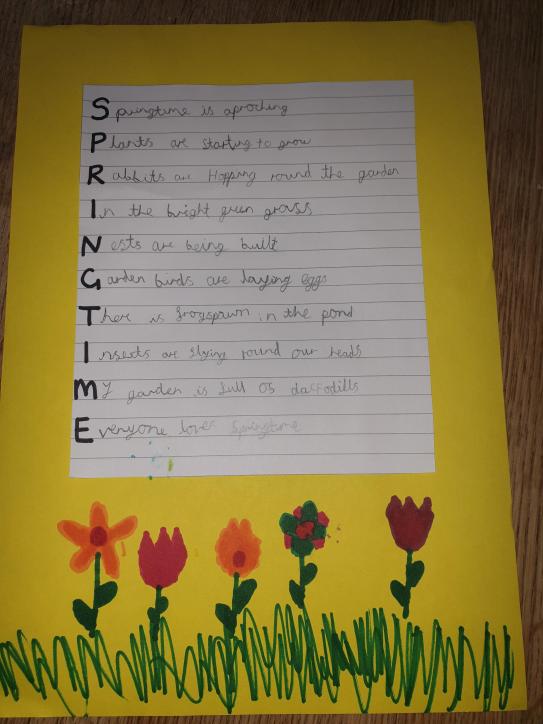 Springtime is aproching
Plants are starting to grow
Rabbits are Hopping round the garden
In the bright green grass
Nests are being built
Garden birds are laying eggs
There is frogspawn in the pond
Insects are flying round our heads
My garden is full of daffodills
Everyone loves Springtime